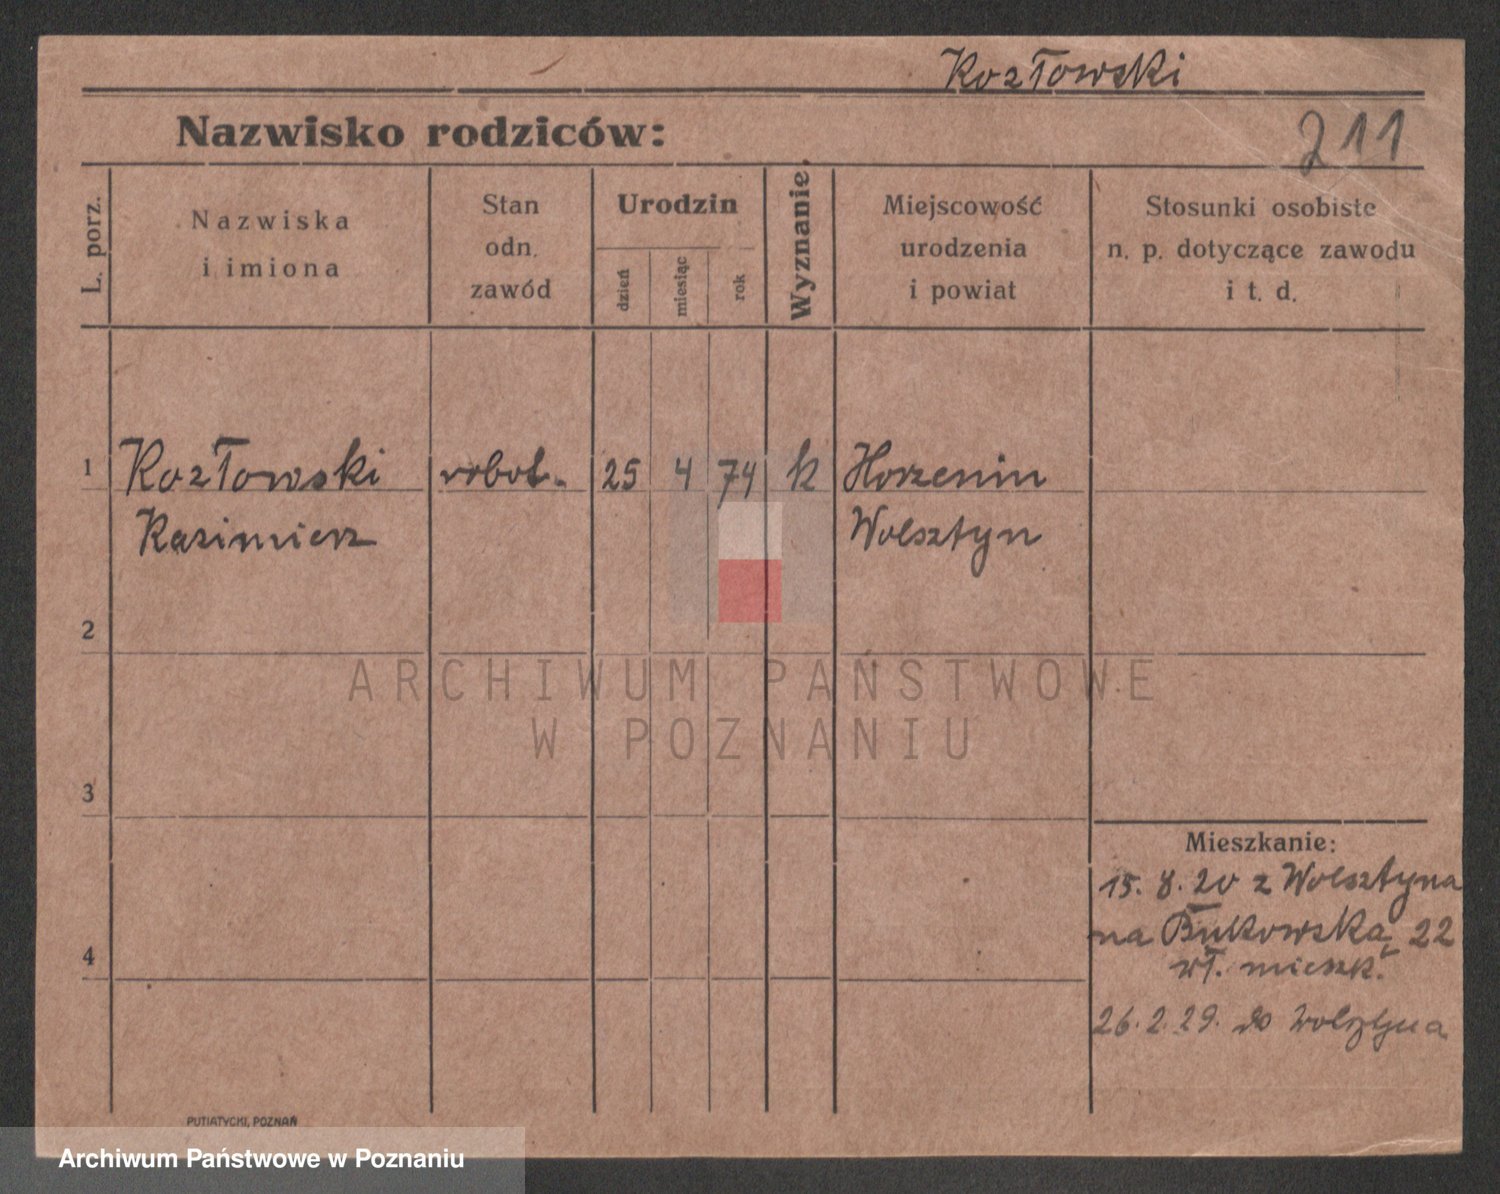 Kozłowski
Nazwisko rodziców:
211
L. porz.
Nazwiska
i imiona
Stan
odn.
zawód
Urodzin
dzień
miesiąc
rok
Wyznanie.
Miejscowość
urodzenia
i powiat
Stosunki osobiste
n. p. dotyczące zawodu
i t. d.
1 Kozłowski robot. 25 4 74 k Horzenin
Kazimierz Wolsztyn
2
3
4
Mieszkanie:
15. 8. 20 z Wolsztyna
na Bukowska 22
wł. mieszk.
26. 2. 29. do Wolsztyna
PUTIATYCKI, POZNAŃ
ARCHIWUM PAŃSTWOWE
W POZNANIU
Archiwum Państwowe w Poznaniu